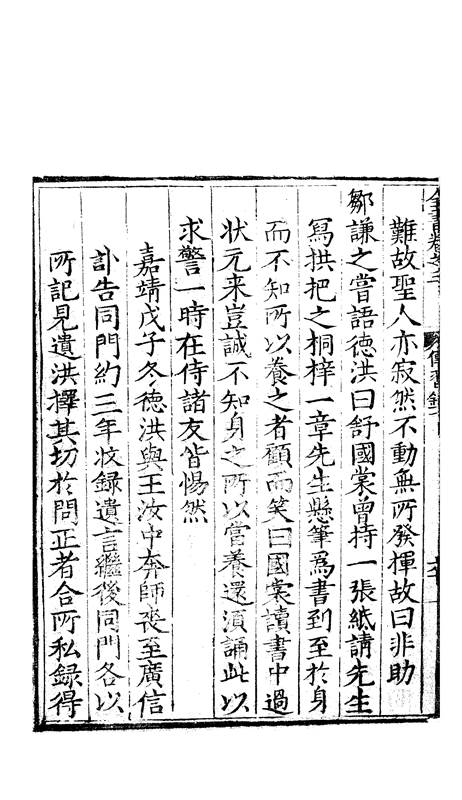 難故聖人亦寂然不動無所發揮故曰非助
鄒謙之嘗語德洪曰舒國裳曾持一張紙請先生
寫拱把之桐梓一章先生懸筆為書到至於身
而不知所以養之者顧而笑曰國裳讀書中過
狀元来豈誠不知身之所以當養還須誦此以
求警一時在侍諸友皆惕然
嘉靖戊子冬德洪與王汝中奔師喪至廣信
訃告同門約三年收録遺言繼後同門各以
所記見遺洪擇其切於問正者合所私録得